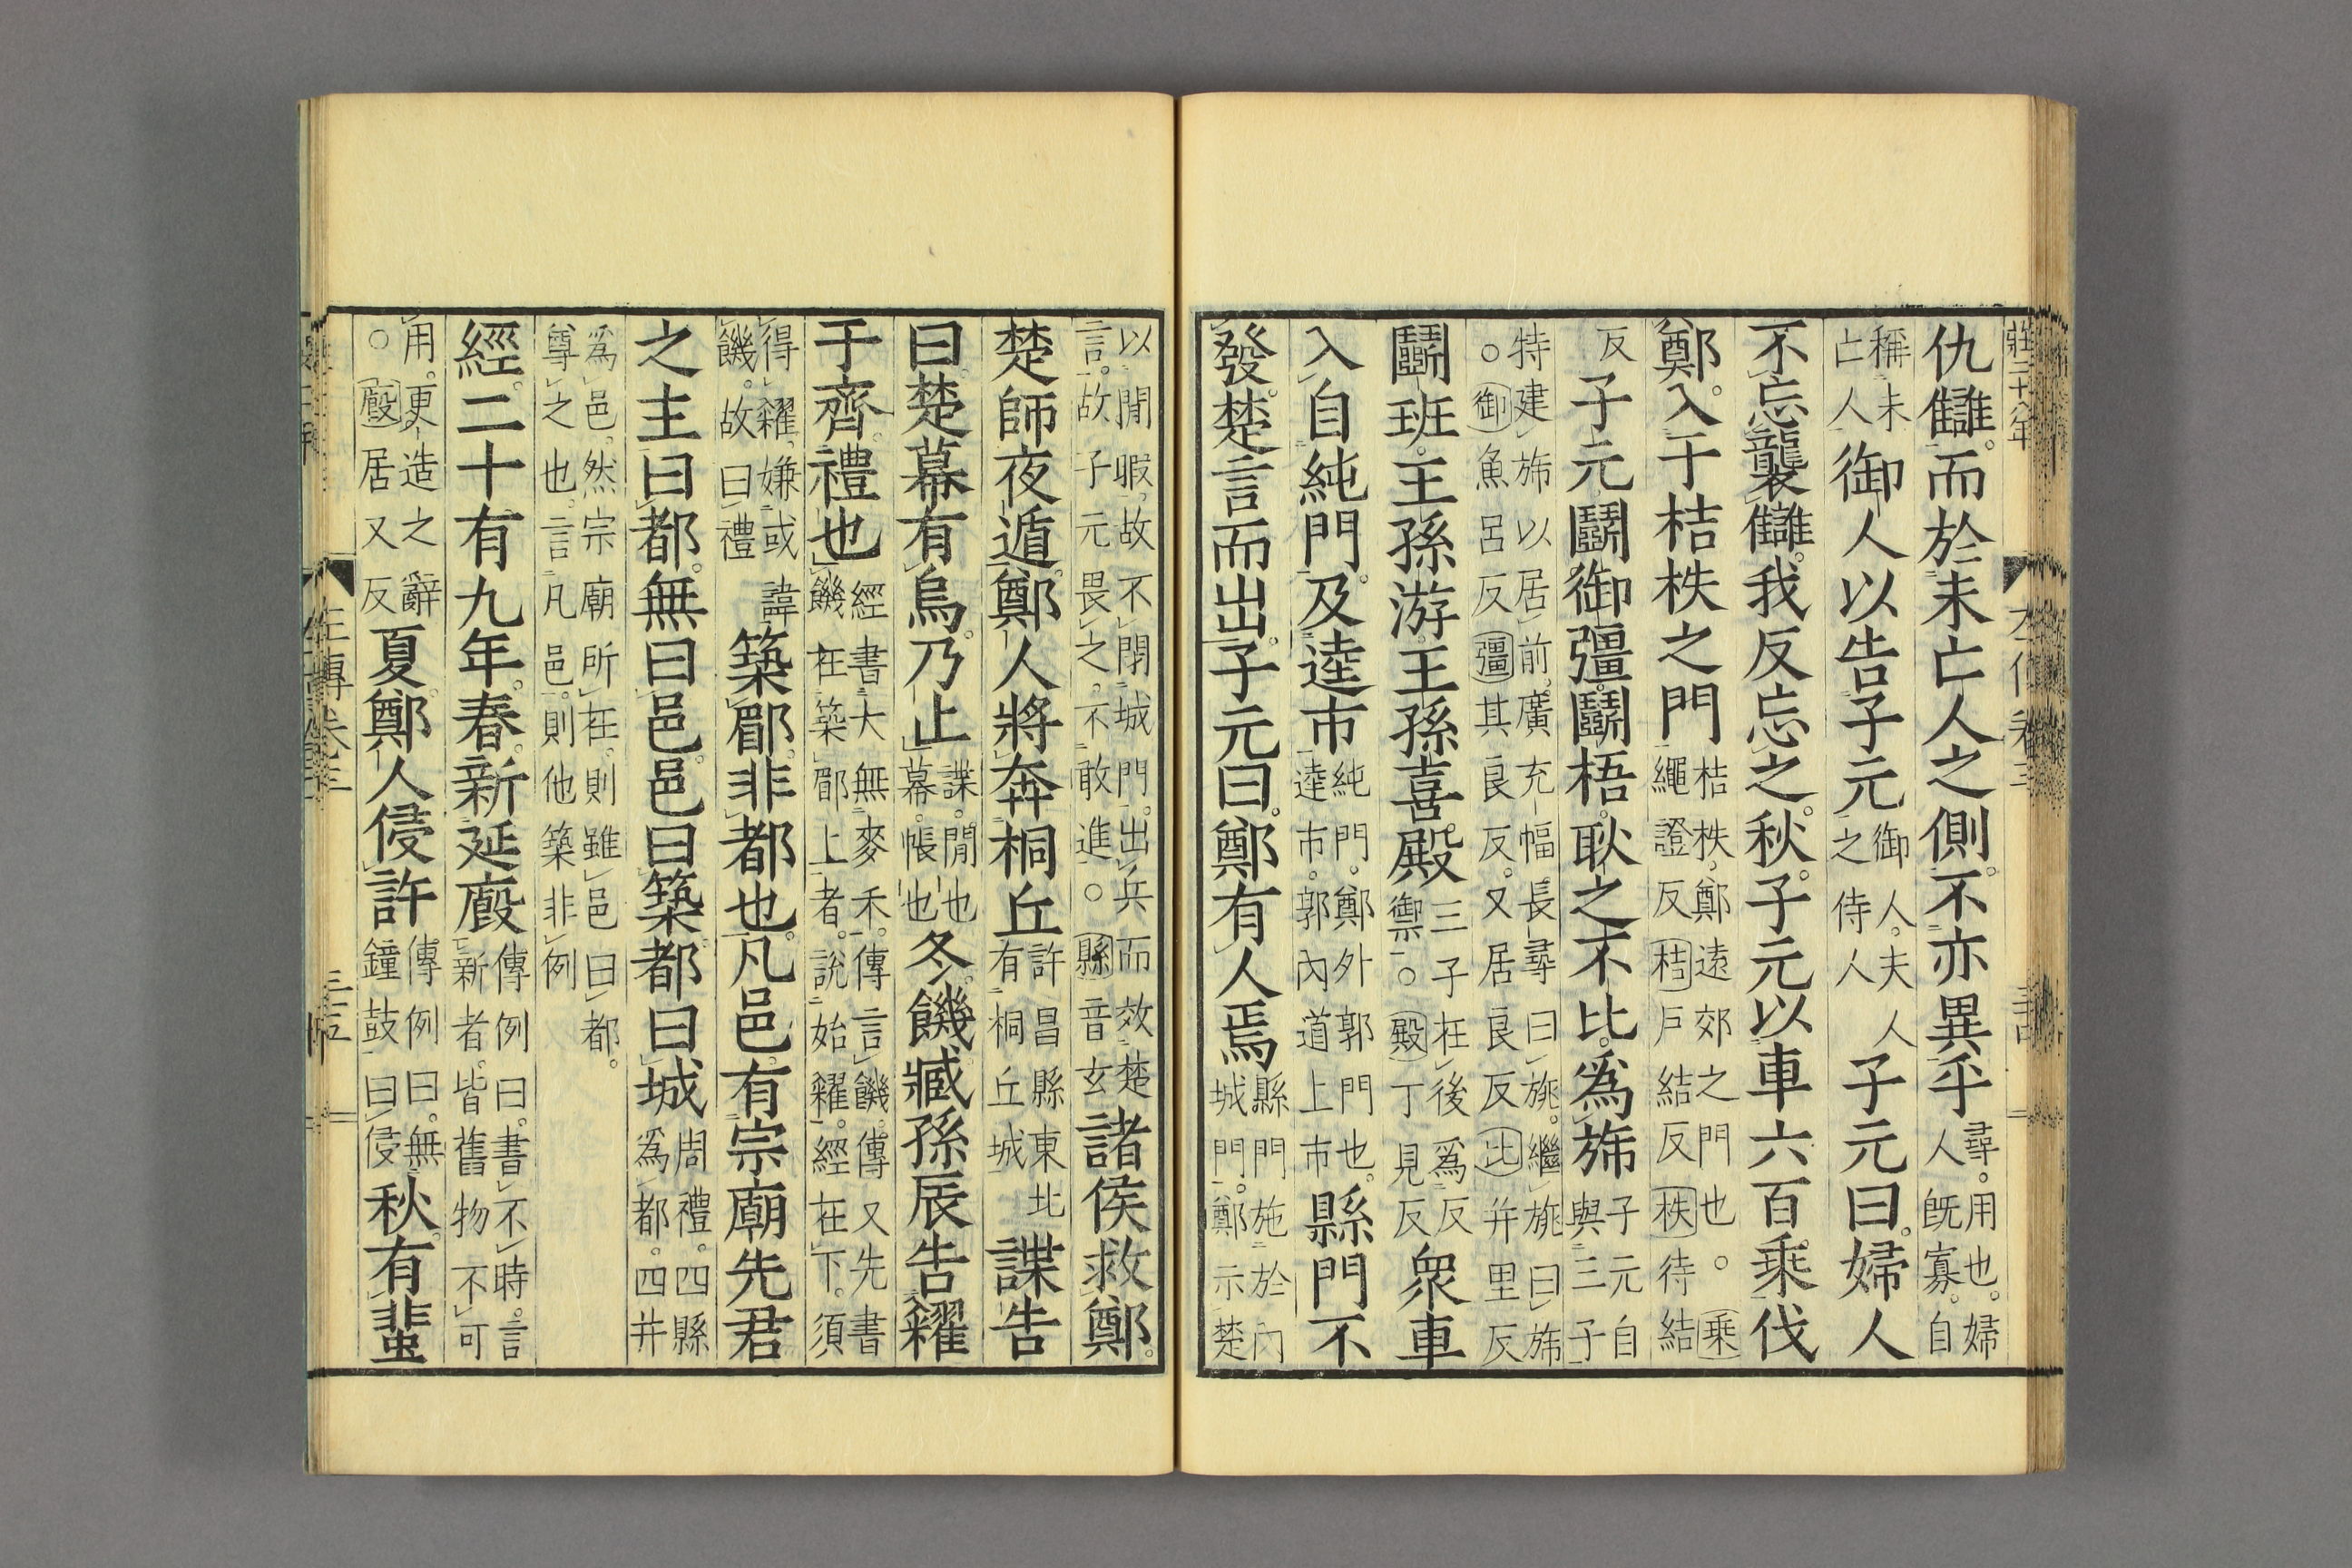 莊二十八年
仇讎。而於未亡人之側。不亦異乎尋。用也。婦人既寡。自
稱未亡人御人以告子元御人。夫人之侍人子元曰。婦人
不忘襲讎。我反忘之。秋。子元以車六百乘伐
鄭。入于桔柣之門桔柣。鄭遠郊之門也。○乘繩證反桔戶結反柣待結
反子元鬭御彊。鬭梧。耿之不比。爲斾子元自與三子
特建斾以居前。廣充幅長尋曰旐。繼旐曰斾○御魚呂反彊其良反。又居良反比并里反
鬭班。王孫游。王孫喜。殿三子在後爲反禦。○殿丁見反衆車
入自純門。及逵市純門。鄭外郭門也。逵市。郭內道上市縣門不
發。楚言而出。子元曰。鄭有人焉縣門施於內城門。鄭示楚
以閒暇。故不閉城門。出兵而效楚言。故子元畏之。不敢進。○縣音玄諸侯救鄭。
楚師夜遁。鄭人將奔桐丘許昌縣東北有桐丘城諜告
曰。楚幕有烏。乃止諜。閒也幕。帳也冬。饑。臧孫辰告糴
于齊。禮也經書大無麥禾。傳言饑。傳又先書饑在築郿上者。說始糴。經在下。須
得糴。嫌或諱饑。故曰禮築郿。非都也。凡邑。有宗廟先君
之主曰都。無曰邑。邑曰築。都曰城周禮。四縣爲都。四井
爲邑。然宗廟所在。則雖邑曰都。尊之也。言凡邑。則他築非例
經。二十有九年。春。新延廄傳例曰。書不時。言新者。皆舊物不可
用。更造之辭○廄居又反夏。鄭人侵許傳例曰。無鐘鼓曰侵秋。有蜚
左傳卷三